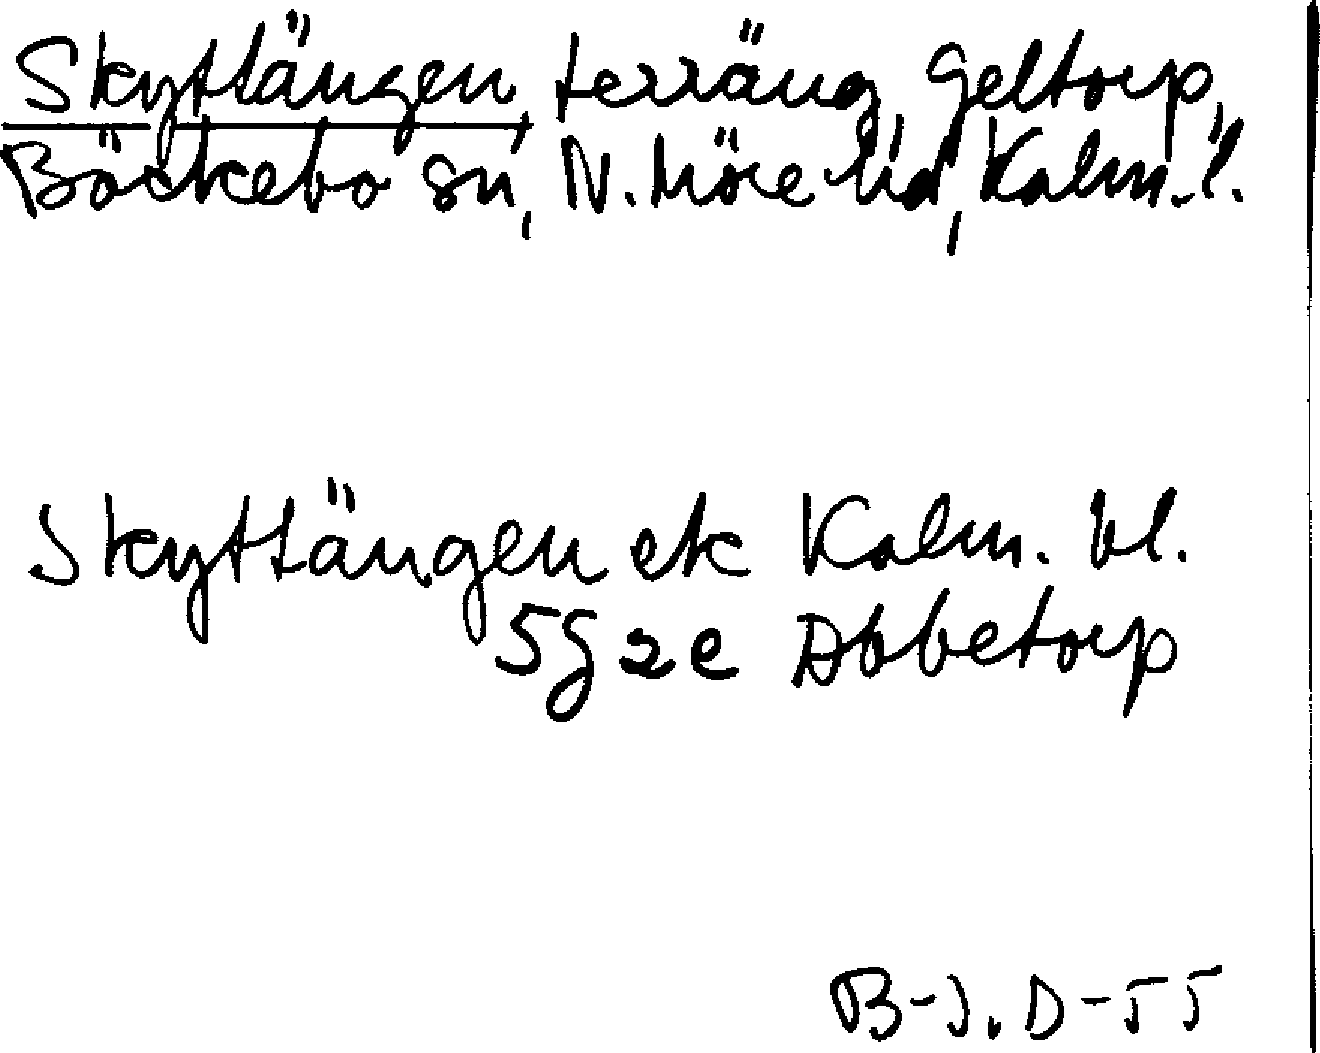 Skyttängen, terräng, Geltorp,
Bäckebo sn, N. Möre hd, Kalm. l.
Skyttängen ek Kalm. bl.
5g 2e Abbetorp
B-J. D-55